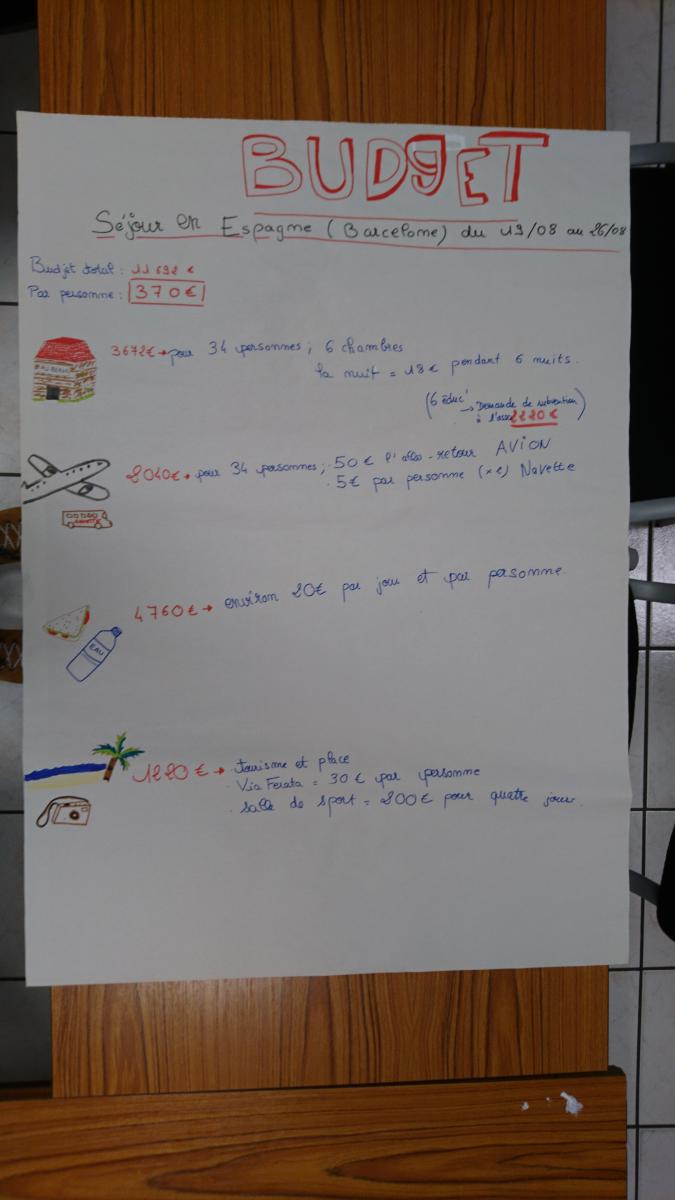 BUDGET
Séjour en Espagne (Barcelone) du 19/08 au 26/08
Budget total : 11 692 €
Par personne : 370 €
AUBERGE
3672€ → pour 34 personnes ; 6 chambres
la nuit = 18€ pendant 6 nuits.
(6 éduc' → Demande de subvention
à l'asso 2220 €)
2040€ → pour 34 personnes ; . 50 € l'aller-retour AVION
. 5€ par personne (x2) Navette
NAVETTE
4760€ → environ 20€ par jour et par personne.
EAU
1220€ → . tourisme et place
. Via Ferata = 30 € par personne
. salle de sport = 200€ pour quatre jours.